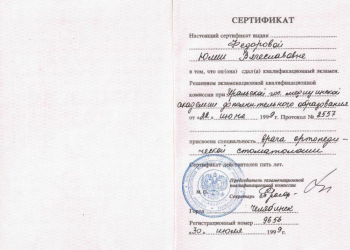 СЕРТИФИКАТ
Настоящий сертификат выдан
Федоровой
Юлии Вячеславовне
в том, что он(она) сдал(а) квалификационный экзамен.
Решением экзаменационной квалификационной
комиссии при Уральской гос. медицинской
академии дополнительного образования
от «22» июня 1999 г. Протокол № 2557
присвоена специальность врача ортопеди-
ческой стоматологии
Сертификат действителен пять лет.
Председатель экзаменационной
квалификационной комиссии
М. П.
Секретарь
Город Челябинск
Регистрационный номер 9656
«30» июля 1999 г.